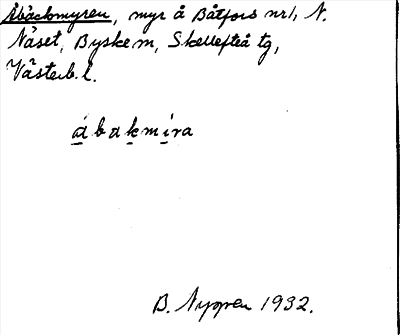 Åbäckmyren, myr å Båtfors nr 1, N.
Näset, Byske sn, Skellefteå tg,
Västerb. l.
åbakmira
B. Nygren 1932.